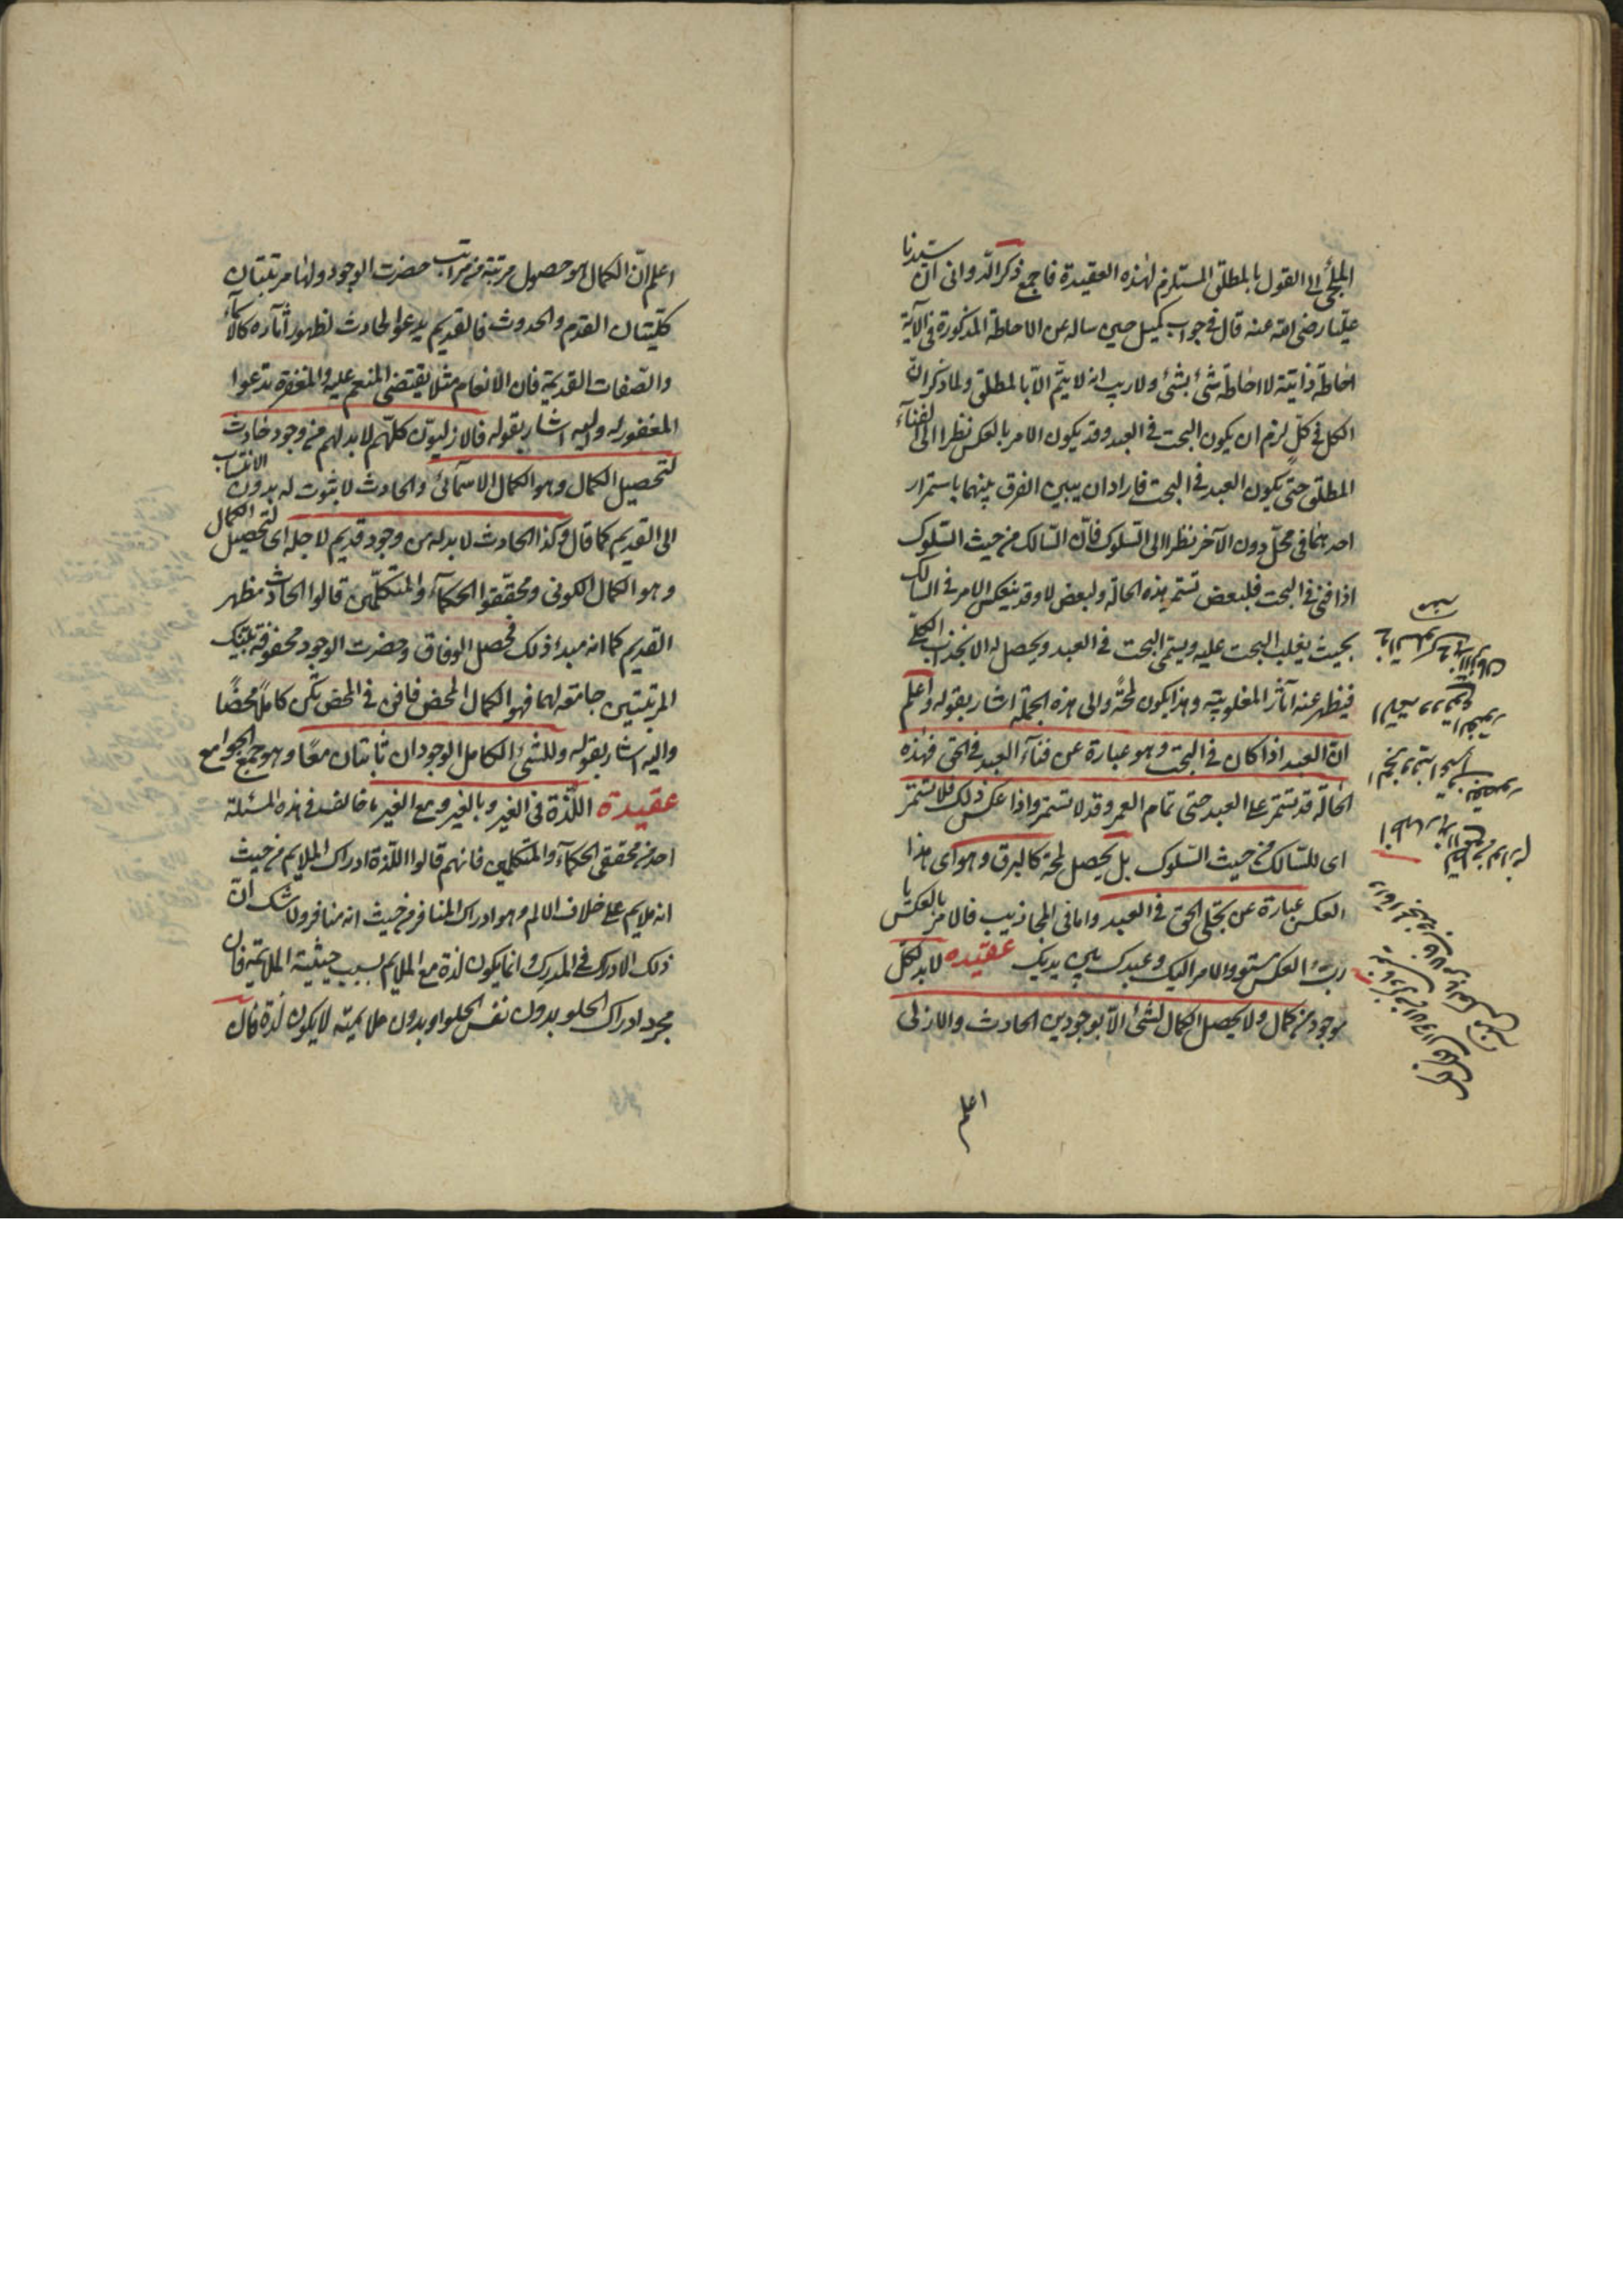 الملجئ الى القول بالمطلق المستلزم لهذه العقيدة فاجمع ذكر الدوانى ان سيدنا
عليا رضى الله عنه قال فى جواب كميل حين ساله عن الاحاطة المذكورة فى الآية
احاطة ذاتية لا احاطة شئ بشئ ولا ريب انه لا يتم الا بالمطلق ولما ذكر ان
الكل فى كل لزم ان يكون البحت فى العبد وقد يكون الامر بالعكس نظرا الى لفناء
المطلق حتى يكون العبد فى البحت فاراد ان يبين الفرق بينهما باستمرار
احدهما فى محل دون الآخر نظرا الى السلوك فان السالك من حيث السلوك
اذا فنى فى البحت فلبعض تستمر هذه الحالة ولبعض لا وقد ينعكس الامر فى السالك
بحيث يغلب البحت عليه ويستمى البحت فى العبد ويحصل له الانجذاب الكلى
فيظهر عنه آثار المغلوبية وهذا يكون لمحة والى هذه الجملة اشار بقوله واعلم
ان العبد اذا كان فى البحت وهو عبارة عن فناء العبد فى الحق فهذه
الحالة قد تستمر على العبد حتى تمام العمر وقد لا تستمر واذا عكس ذلك فلا تستمر
اى للسالك من حيث السلوك بل يحصل لمحة كالبرق وهو اى هذا
العكس عبارة عن تجلى الحق فى العبد واما فى المجاذيب فالامر بالعكس يا
رب العكس مستو والامر اليك وعبدك بين يديك عقيده لابد لكل
موجود من كمال ولا يحصل الكمال لشئ الا بوجودين الحادث والازلى
اعلم
اعلم ان الكمال هو حصول مرتبة من مراتب حضرت الوجود ولها مرتبتان
كليتان القدم والحدوث فالقديم يدعو الحادث لظهور آثاره كالاسماء
والصفات القديمة فان الانعام مثلا يقتضى المنعم عليه والمغفرة تدعوا
المغفور له واليه اشار بقوله فالازليون كلهم لابد لهم من وجود حادث
لتحصيل الكمال وهو الكمال الاسمائى والحادث لا ثبوت له بدون الانتساب
الى القديم كما قال وكذا الحادث لابد له من وجود قديم لاجله اى لتحصيل الكمال
وهو الكمال الكونى ومحققوا الحكماء والمتكلمين قالوا الحادث مظهر
القديم كما انه مبدء ذلك فحصل الوفاق وحضرت الوجود محفوفة بتينك
المرتبتين جامعة لهما فهو الكمال المحض فافن فى المحض تكن كاملا محضا
واليه اشار بقوله وللشئ الكامل الوجودان ثابتان معا وهو جمع الجوامع
عقيدة اللذة فى الغير وبالغير ومع الغير ما خالف فى هذه المسئلة
احد من محققى الحكماء والمتكلمين فانهم قالوا اللذة ادراك الملايم من حيث
انه ملايم على خلاف الالم وهو ادراك المنافر من حيث انه منافر ولا شك ان
ذلك الادراك فى المدرك وانما يكون لذة مع الملايم بسبب حيثية الملايمة فان
مجرد ادراك الحلو بدون نفس الحلو او بدون ملايميته لا يكون لذة فان